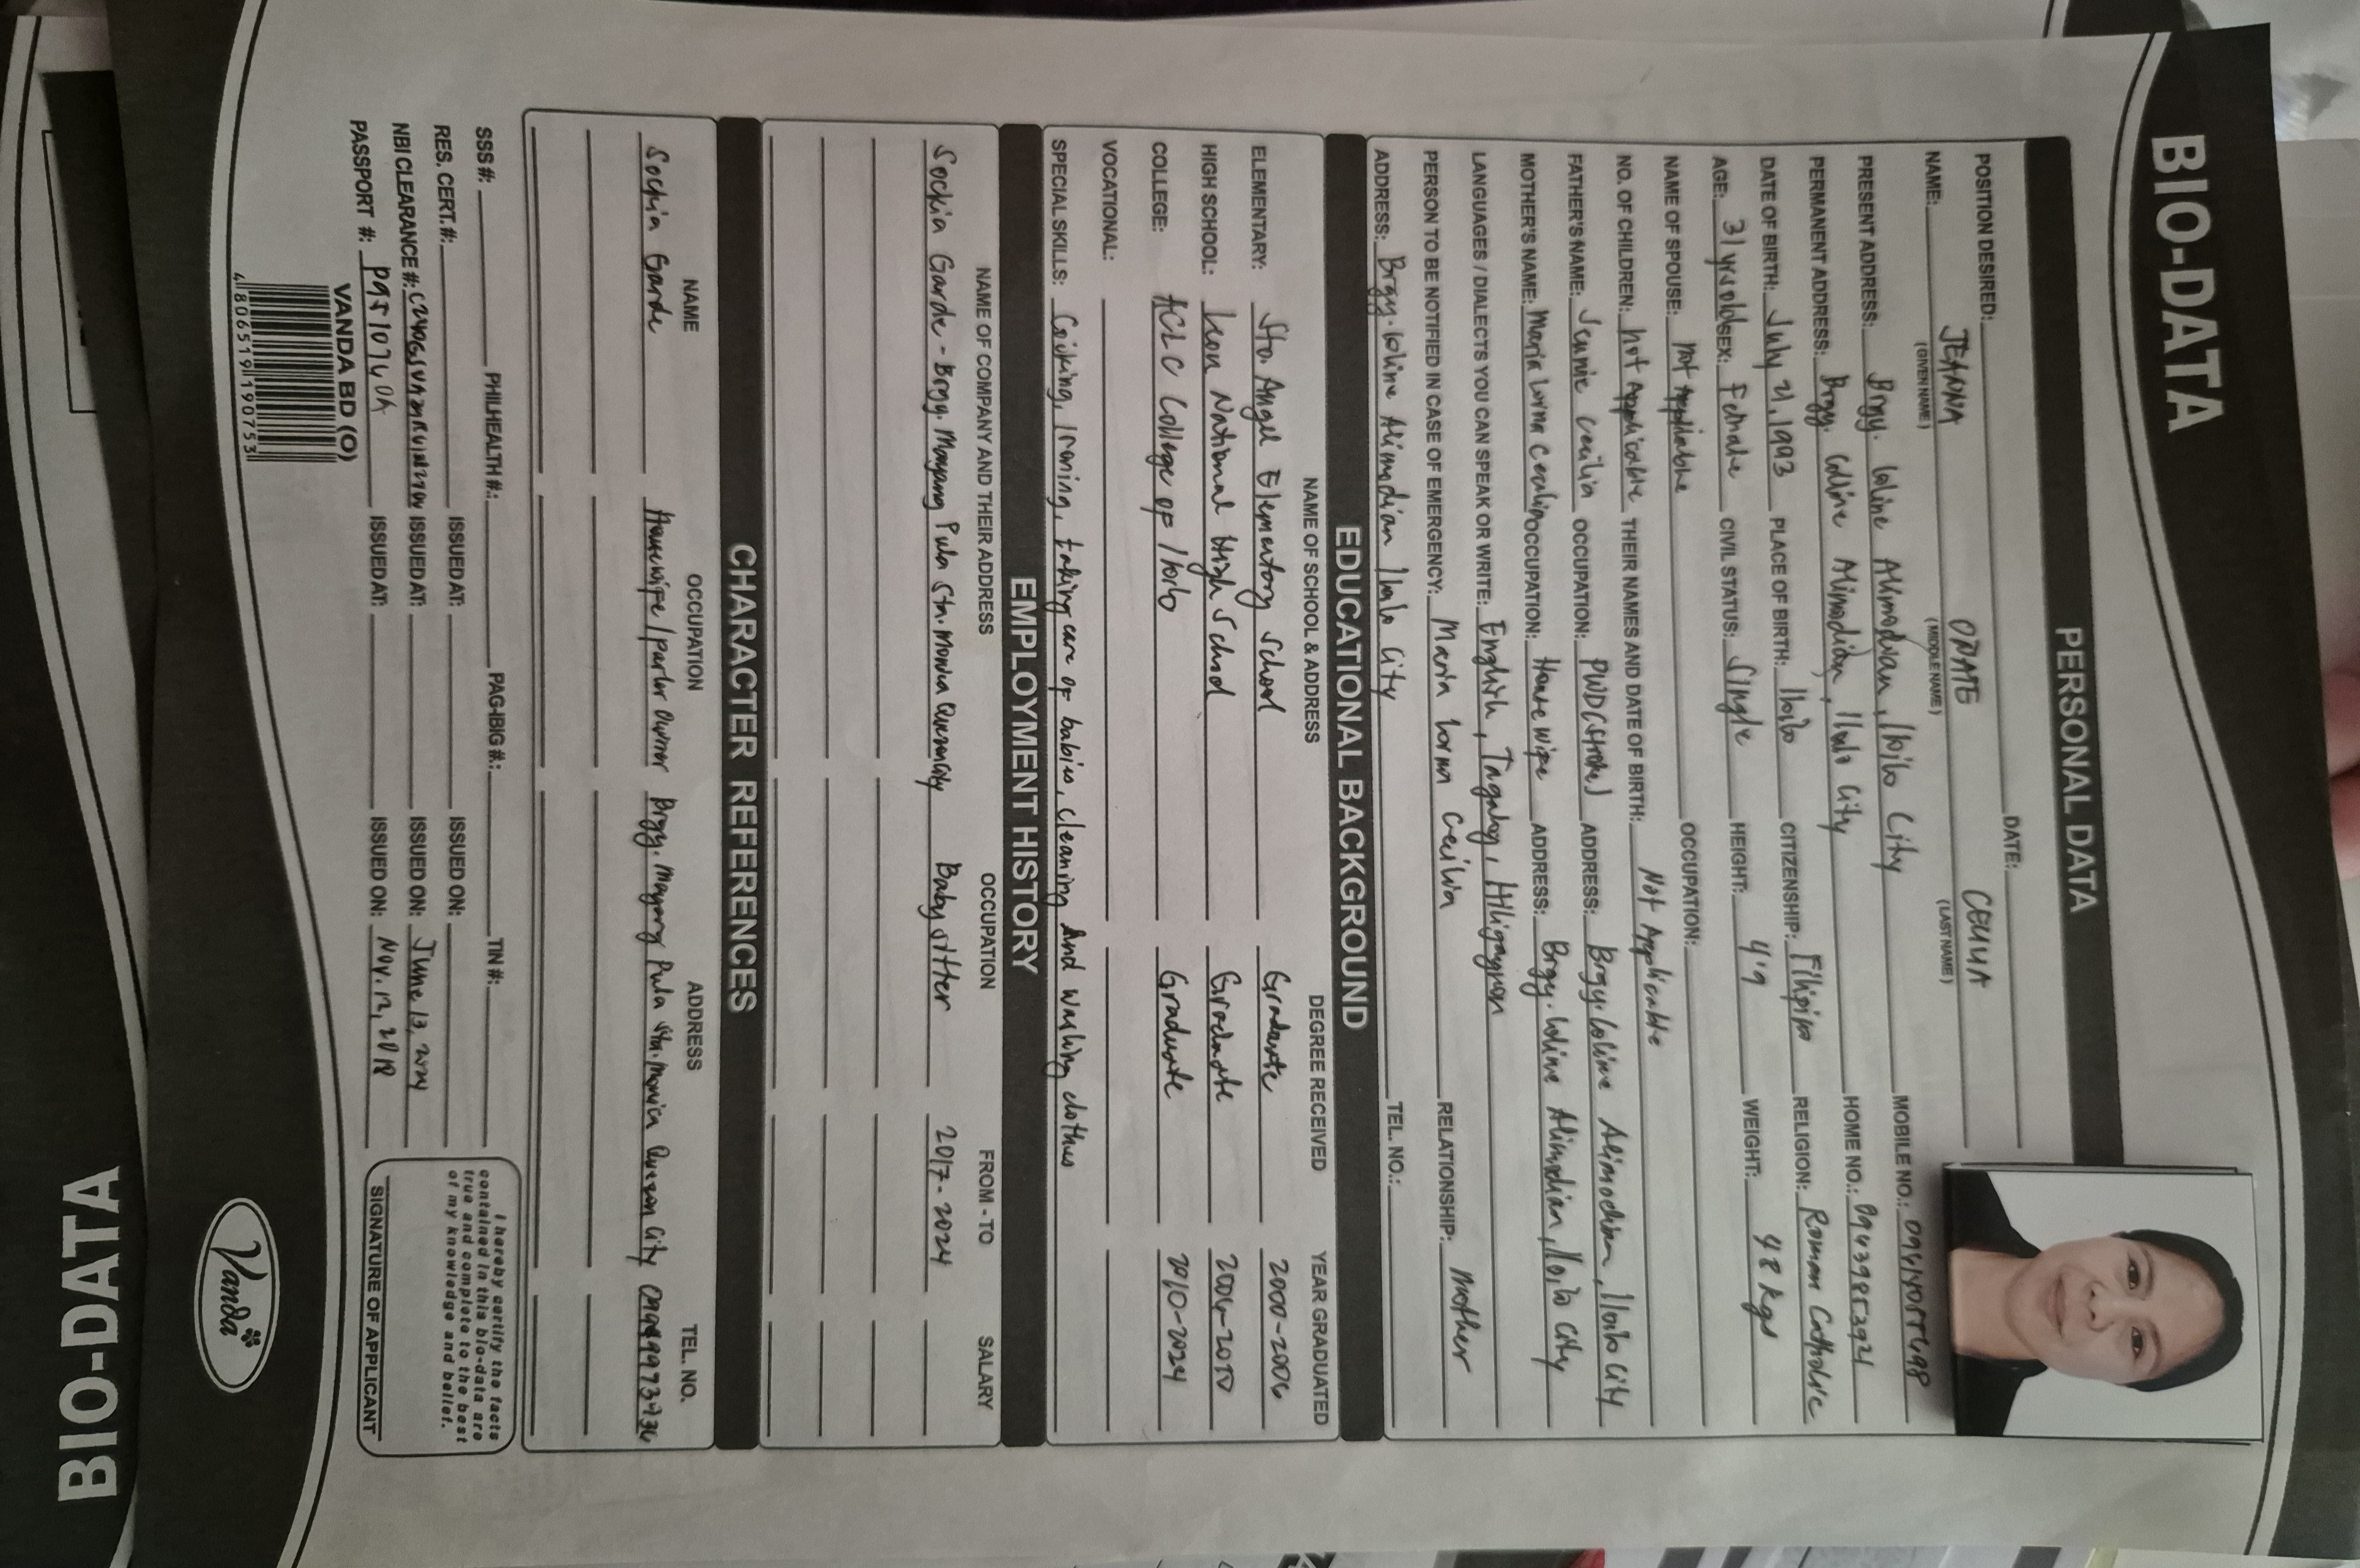 BIO-DATA
PERSONAL DATA
POSITION DESIRED: DATE:
NAME: JEANA OÑATE CECILIA
(GIVEN NAME) (MIDDLE NAME) (LAST NAME)
PRESENT ADDRESS: Brgy. Coline Alimodian, Iloilo City MOBILE NO.:
PERMANENT ADDRESS: Brgy. Coline Alimodian, Iloilo City HOME NO.:
DATE OF BIRTH: July 21, 1993 PLACE OF BIRTH: Iloilo CITIZENSHIP: Filipino RELIGION: Roman Catholic
AGE: 31 yrs old SEX: Female CIVIL STATUS: Single HEIGHT: 4'9 WEIGHT: 48 kgs
NAME OF SPOUSE: Not OCCUPATION:
NO. OF CHILDREN: Not Applicable THEIR NAMES AND DATE OF BIRTH: Not Applicable
FATHER'S NAME: Cecilia OCCUPATION: PWD (stroke) ADDRESS: Brgy. Coline Alimodian, Iloilo City
MOTHER'S NAME: Maria Lorna Cecilia OCCUPATION: House wife ADDRESS: Brgy. Coline Alimodian, Iloilo City
LANGUAGES / DIALECTS YOU CAN SPEAK OR WRITE: English, Tagalog,
PERSON TO BE NOTIFIED IN CASE OF EMERGENCY: Maria Lorna Cecilia RELATIONSHIP: Mother
ADDRESS: Brgy. Coline Alimodian Iloilo City TEL. NO.:
EDUCATIONAL BACKGROUND
NAME OF SCHOOL & ADDRESS DEGREE RECEIVED YEAR GRADUATED
ELEMENTARY: Sto. Angel Elementary School Graduate 2000-2006
HIGH SCHOOL: Leon National High School Graduate 2006-2010
COLLEGE: ACLC College of Iloilo Graduate 2010-2024
VOCATIONAL:
SPECIAL SKILLS: Cooking, Ironing, taking care of babies, cleaning And washing clothes
EMPLOYMENT HISTORY
NAME OF COMPANY AND THEIR ADDRESS OCCUPATION FROM - TO SALARY
Sockia Garde - Brgy Mayang Pula Sta. Monica Quezon City Baby sitter 2017-2024
CHARACTER REFERENCES
NAME OCCUPATION ADDRESS TEL. NO.
Sockia Garde Housewife/parlor owner Brgy. Mayang Pula Sta. Monica Quezon City
SSS #: PHILHEALTH #: PAG-IBIG #: TIN #:
RES. CERT. #: ISSUED AT: ISSUED ON:
NBI CLEARANCE #: ISSUED AT: ISSUED ON: June 13, 2024
PASSPORT #: P9510740A ISSUED AT: ISSUED ON: Nov. 12, 2018
I hereby certify the facts
contained in this bio-data are
true and complete to the best
of my knowledge and belief.
SIGNATURE OF APPLICANT
VANDA BD (O)
4 806519 190753
Vanda
BIO-DATA